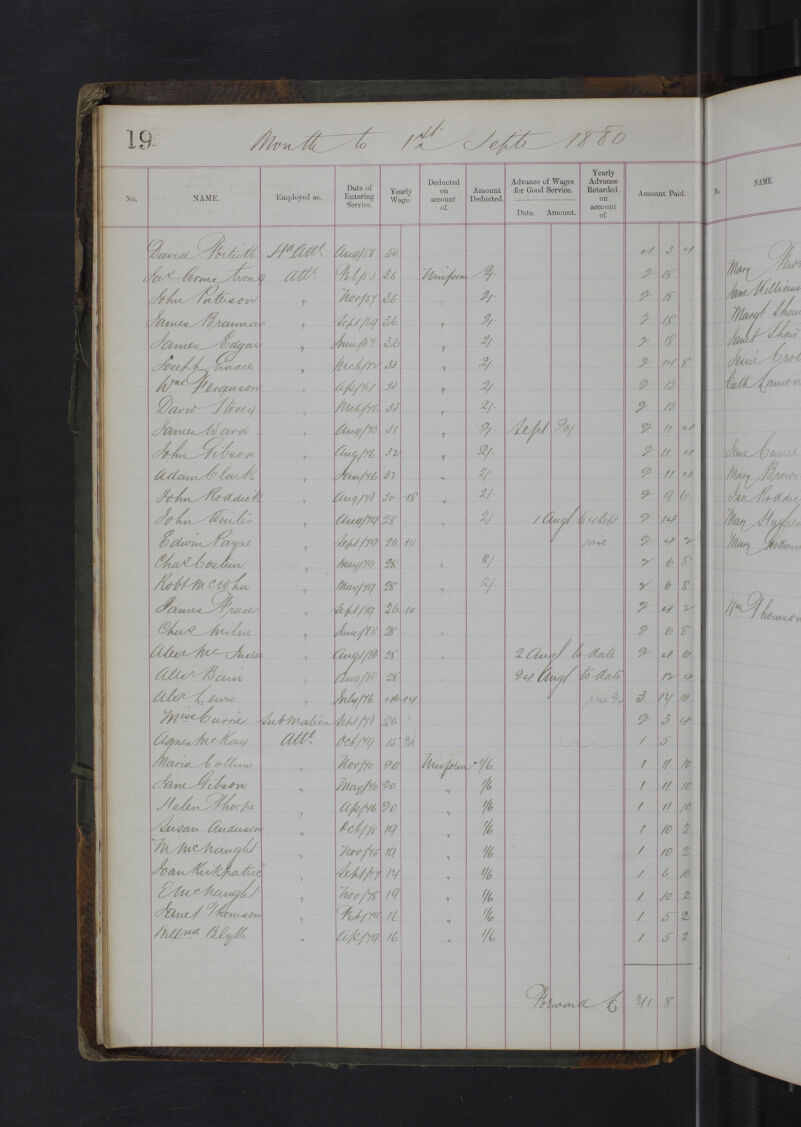 19
Month to 1st Septr 1880
No. NAME. Employed as. Date of Entering Service. Yearly Wage. Deducted on account of. Amount Deducted. Advance of Wages for Good Service. Date. Amount. Yearly Advance Retarded on account of. Amount Paid.
David Hd Attt Aug/58 50 4 3 4
Jas Armstrong Attt Feb/53 36 Uniform 2/- 2 18
John Paterson " Nov/57 36 " 2/- 2 18
James Brannan " Sept/69 36 " 2/- 2 18
James Edgar " June/67 36 " 2/- 2 18
Joseph Gracie " Mch/72 33 " 2/- 2 14 8
Wm Ferguson " Apl/ 33 " 2/- 2 13
David Storey " Mch/76 33 " 2/- 2 13
James Ward " Aug/73 31 " 2/- Sept 2 11 4
John Gibson " Aug/76 32 " 2/- 2 11 4
Adam Clark " Jan/76 32 " 2/- 2 11 4
John Roddick " Aug/78 30 18 " 2/- 2 9 6
John " Aug/79 28 " 2/ 1 Augt to 4 Sept 2 14
Edwin Payne " Sept/79 26 10 2 4 2
Chas Costin " May/79 28 " 2/- 2 6 8
Robt McWhir " May/79 28 " 2/- 2 6 8
James Fraser " Sept/79 26 10 2 4 2
Chas Milne " June/80 28 " 2 6 8
Alexr Mc " Augt/80 28 " 2 Augt to date 2 4 6
Alexr Bain " Aug/80 28 24 Augt to date 12 4
Alexr Lewis " July/76 14 3 14 10
Miss Currie Submatron Sept/78 26 2 3 4
Agnes McKay Attt Oct/79 15 1 5
Maria Collins " Nov/70 20 Uniform 1/6 1 11 10
Jane Gibson " May/70 20 " 1/6 1 11 10
Helen Thorpe " Apl/76 20 " 1/6 1 11 10
Susan Anderson " Oct/75 19 " 1/6 1 10 2
M McNaught " Nov/75 19 " 1/6 1 10 2
Joan Kirkpatric " Sept/77 14 " 1/6 1 6 10
E McNaught " Nov/78 19 " 1/6 1 10 2
Janet Thomson " Feb/79 16 " 1/6 1 5 2
Willna Blyth " Apl/79 16 " 1/6 1 5 2
Forward £ 71 8
No. NAME.
Mary
Jane William
Margt Shaw
Janet Shaw
Jessie
Cath
Jane Currie
Mary Brown
Isa Roddic
Mary
Mary
Wm Thomson